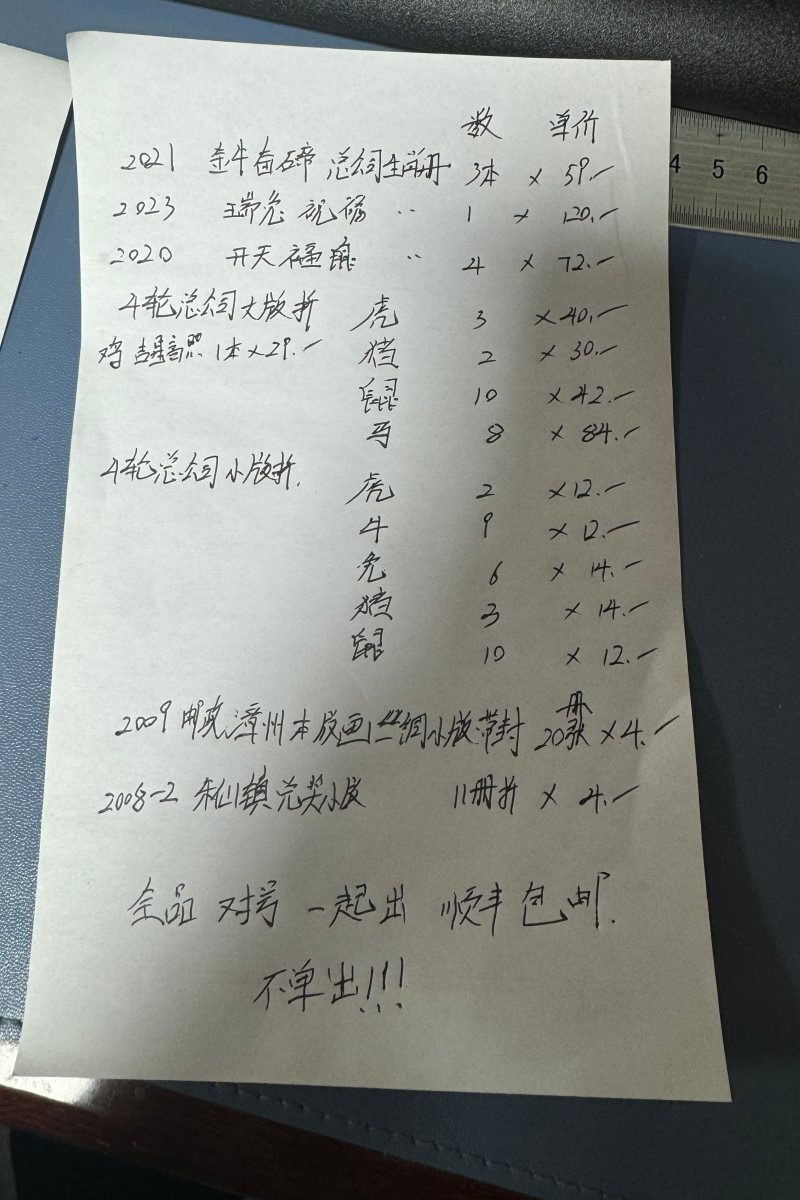 数 单价
2021 金牛奋蹄 总公司生肖册 3本 × 59.-
2023 瑞兔祝福 〃 1 × 120.-
2020 开天福鼠 〃 4 × 72.-
4轮总公司大版折 虎 3 ×40.-
鸡 1本×29.- 猪 2 × 30.-
鼠 10 × 42.-
马 8 × 84.-
4轮总公司小版折. 虎 2 ×12.-
牛 9 × 12.-
兔 6 × 14.-
猪 3 × 14.-
鼠 10 × 12.-
2009 邮克漳州木版画丝绸小版带封 20张 ×4.-
册
2008-2 朱仙镇兑奖小版 11册折 × 4.-
全品 对号 一起出 顺丰包邮.
不单出!!!
4 5 6